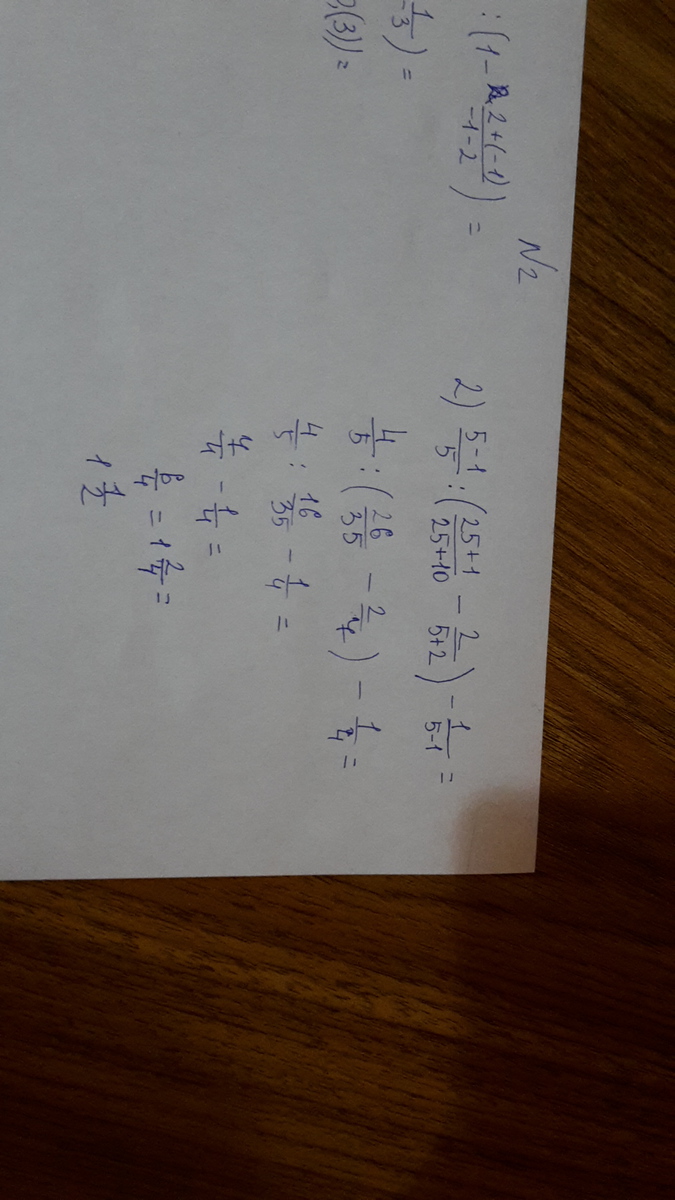 : (1 - 2+(-1)/-1-2) =
1/3) =
(3)) =
N2
2) 5-1/5 : (25+1/25+10 - 2/5+2) - 1/5-1 =
4/5 : (26/35 - 2/7) - 1/4 =
4/5 : 16/35 - 1/4 =
7/4 - 1/4 =
6/4 = 1 2/4 =
1 1/2